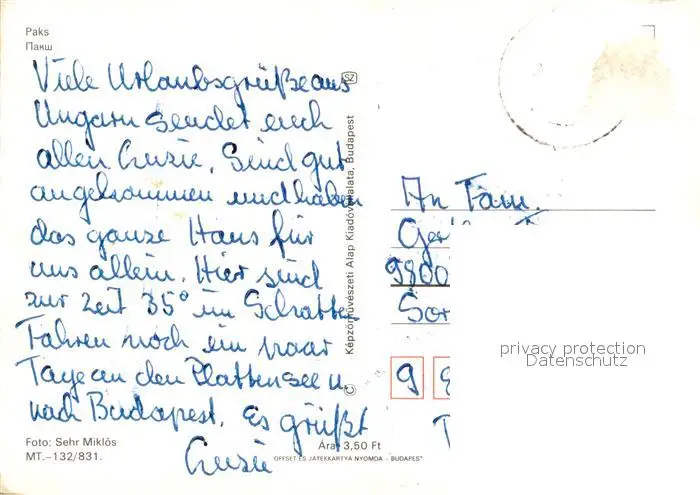 Paks
Пакш
Viele Urlaubsgrüße aus
Ungarn sendet euch
allen Susie. Sind gut
angekommen und haben
das ganze Haus für
uns allein. Hier sind
zur Zeit 35° im Schatten
Fahren noch ein paar
Tage an den Plattensee u.
nach Budapest. Es grüßt
Susie
Foto: Sehr Miklós
MT.–132/831.
Ára: 3,50 Ft
OFFSET ÉS JÁTÉKKÁRTYA NYOMDA – BUDAPEST
SZ
© Képzőművészeti Alap Kiadóvállalata, Budapest
An Fam.
Ger
9800
9
privacy protection
Datenschutz